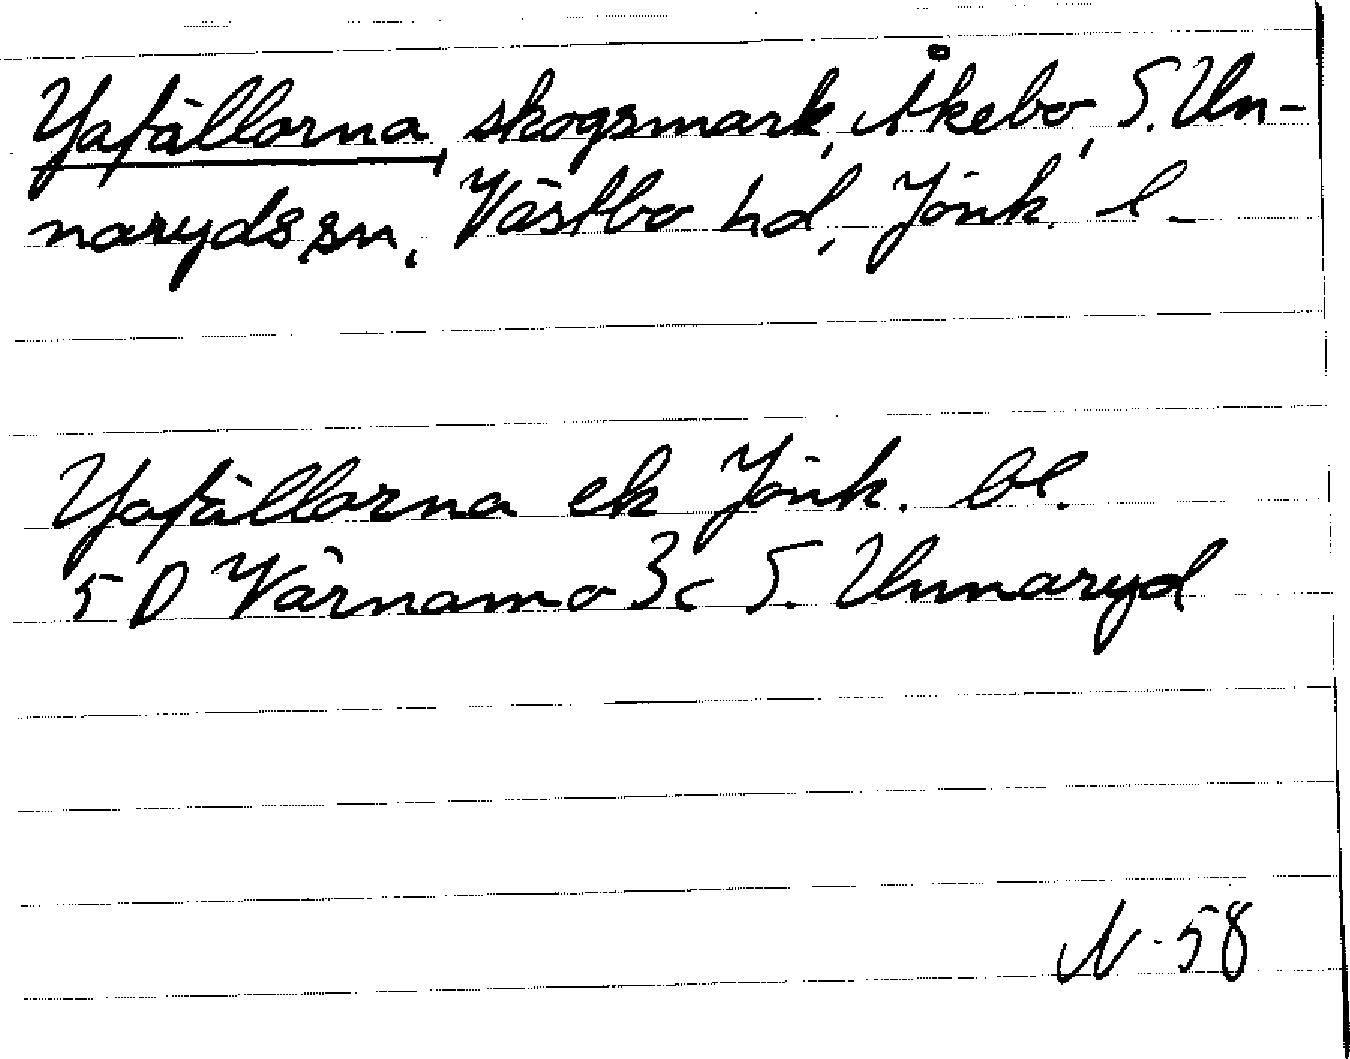 Yafällorna, skogsmark, Åkebo, S. Un-
naryds sn, Västbo hd, Jönk. l.
Yafällorna ek Jönk. bl.
5 D Värnamo 3c S. Unnaryd
N-58